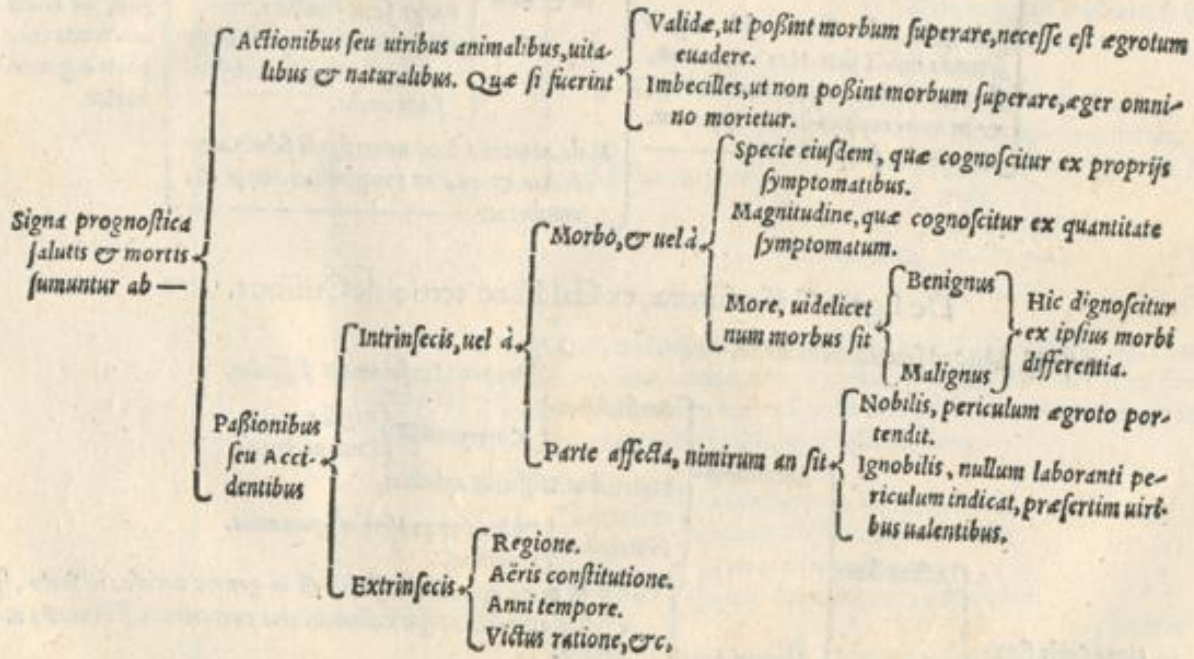 Signa prognostica
salutis & mortis
sumuntur ab —
Actionibus seu uiribus animalibus, uita-
libus & naturalibus. Quæ si fuerint
Validæ, ut poßint morbum superare, necesse est ægrotum
euadere.
Imbecilles, ut non poßint morbum superare, æger omni-
no morietur.
Paßionibus
seu Acci-
dentibus
Intrinsecis, uel à
Morbo, & uel à
Specie eiusdem, quæ cognoscitur ex proprijs
symptomatibus.
Magnitudine, quæ cognoscitur ex quantitate
symptomatum.
More, uidelicet
num morbus sit
Benignus
Malignus
Hic dignoscitur
ex ipsius morbi
differentia.
Parte affecta, nimirum an sit
Nobilis, periculum ægroto por-
tendit.
Ignobilis, nullum laboranti pe-
riculum indicat, præsertim uiri-
bus ualentibus.
Extrinsecis
Regione.
Aëris constitutione.
Anni tempore.
Victus ratione, &c.